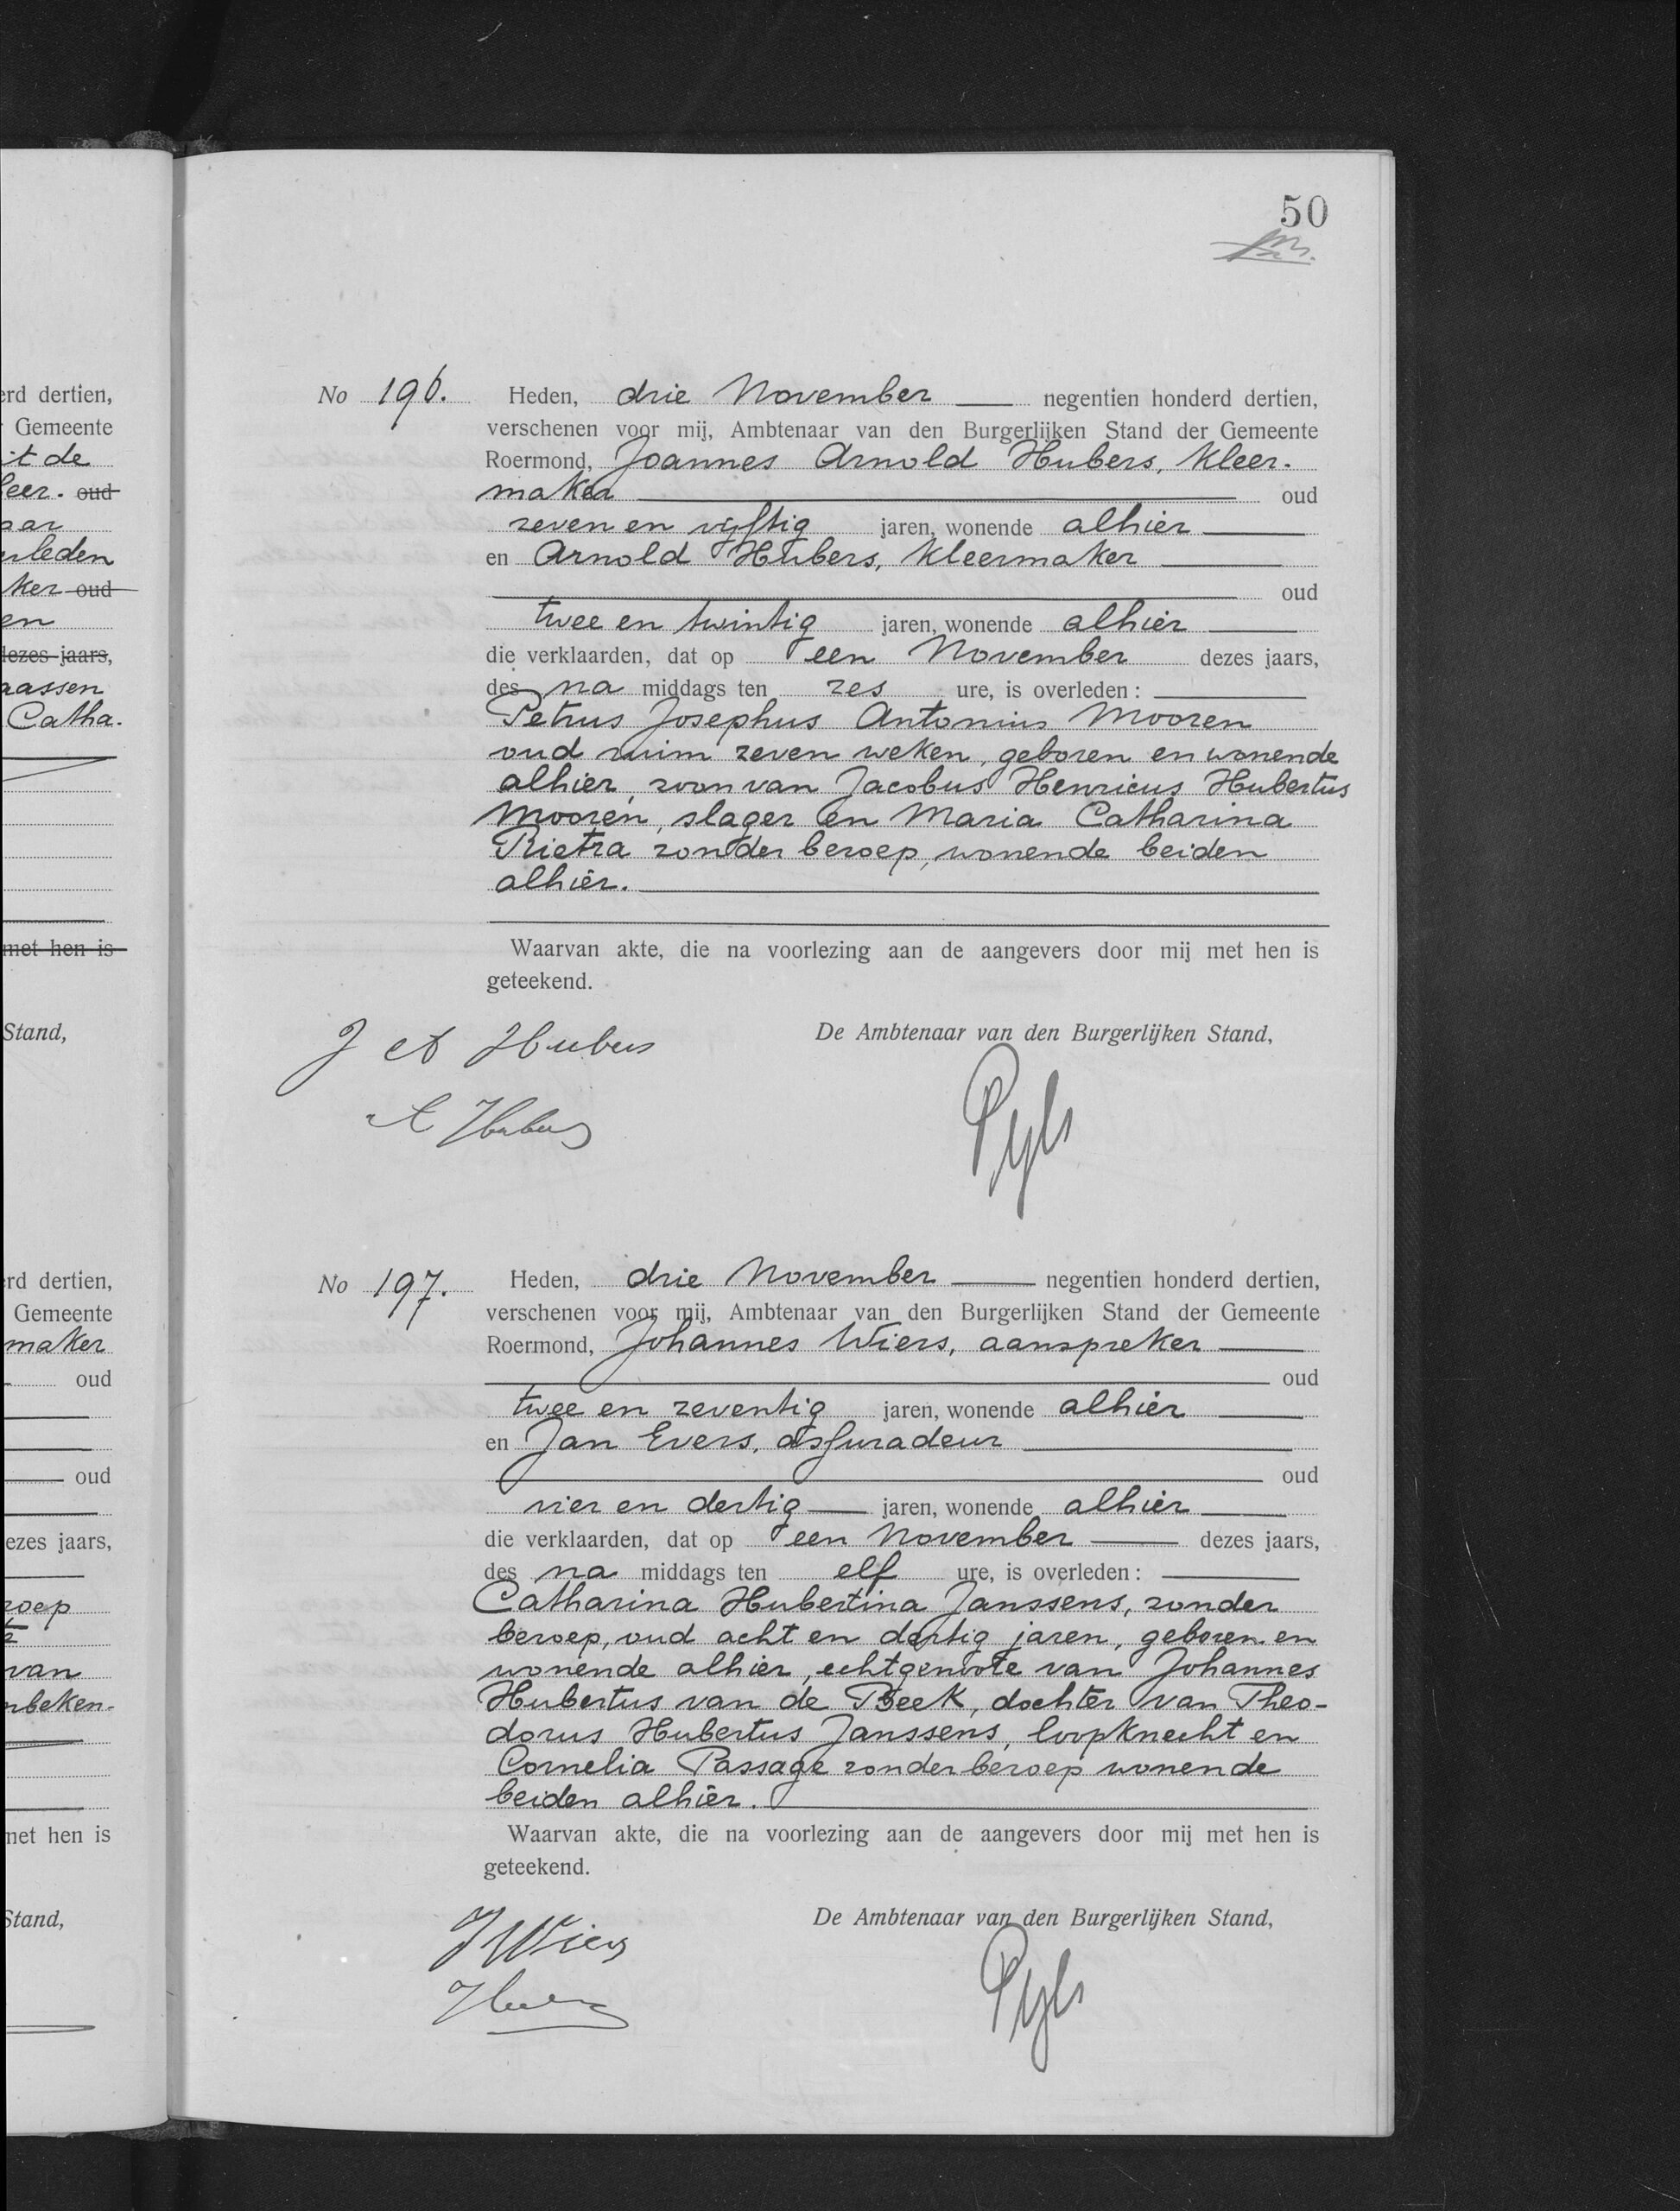 50
erd dertien,
Gemeente
it de
leer. oud
aar
erleden
ker oud
en
dezes jaars,
aassen
Catha.
met hen is
Stand,
rd dertien,
Gemeente
maker
oud
oud
ezes jaars,
roep
van
nbeken-
met hen is
Stand,
No 196. Heden, drie November negentien honderd dertien,
verschenen voor mij, Ambtenaar van den Burgerlijken Stand der Gemeente
Roermond, Joannes Arnold Hubers, kleer-
maker oud
zeven en vyftig jaren, wonende alhier
en Arnold Hubers, kleermaker
oud
twee en twintig jaren, wonende alhier
die verklaarden, dat op een November dezes jaars,
des na middags ten zes ure, is overleden:
Petrus Josephus Antonius Mooren
oud ruim zeven weken, geboren en wonende
alhier, zoon van Jacobus Henricus Hubertus
Mooren, slager en Maria Catharina
Rietra zonder beroep, wonende beiden
alhier.
Waarvan akte, die na voorlezing aan de aangevers door mij met hen is
geteekend.
De Ambtenaar van den Burgerlijken Stand,
J A Hubers
A Hubers
Pyls
No 197. Heden, drie November negentien honderd dertien,
verschenen voor mij, Ambtenaar van den Burgerlijken Stand der Gemeente
Roermond, Johannes Wiers, aanspreker
oud
twee en zeventig jaren, wonende alhier
en Jan Evers, assuradeur
oud
vier en dertig jaren, wonende alhier
die verklaarden, dat op een November dezes jaars,
des na middags ten elf ure, is overleden:
Catharina Hubertina Janssens, zonder
beroep, oud acht en dertig jaren, geboren en
wonende alhier, echtgenoote van Johannes
Hubertus van de Beek, dochter van Theo-
dorus Hubertus Janssens, loopknecht en
Cornelia Passage zonder beroep wonende
beiden alhier.
Waarvan akte, die na voorlezing aan de aangevers door mij met hen is
geteekend.
De Ambtenaar van den Burgerlijken Stand,
J Wiers
Pyls